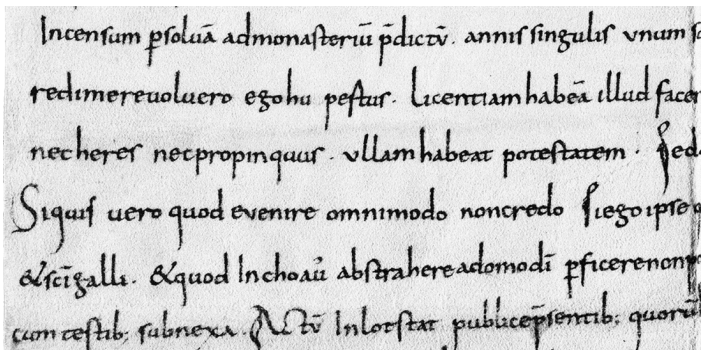 Incensum psoluā admonasteriū p̄dictū. annis singulis unum
redimereuoluero egohu pestus. Licentiamhabeā illud facer
necheres necpropinquus. ullamhabeat potestatem. Sed
Siquis uero quod evenire omnimodo noncredo siegoipse
&sc̄igalli. &quod Inchoaū abstrahereadomodī pficerenon
cum testib; subnexa. Actū Inlotstat publicep̄sentib; quorū